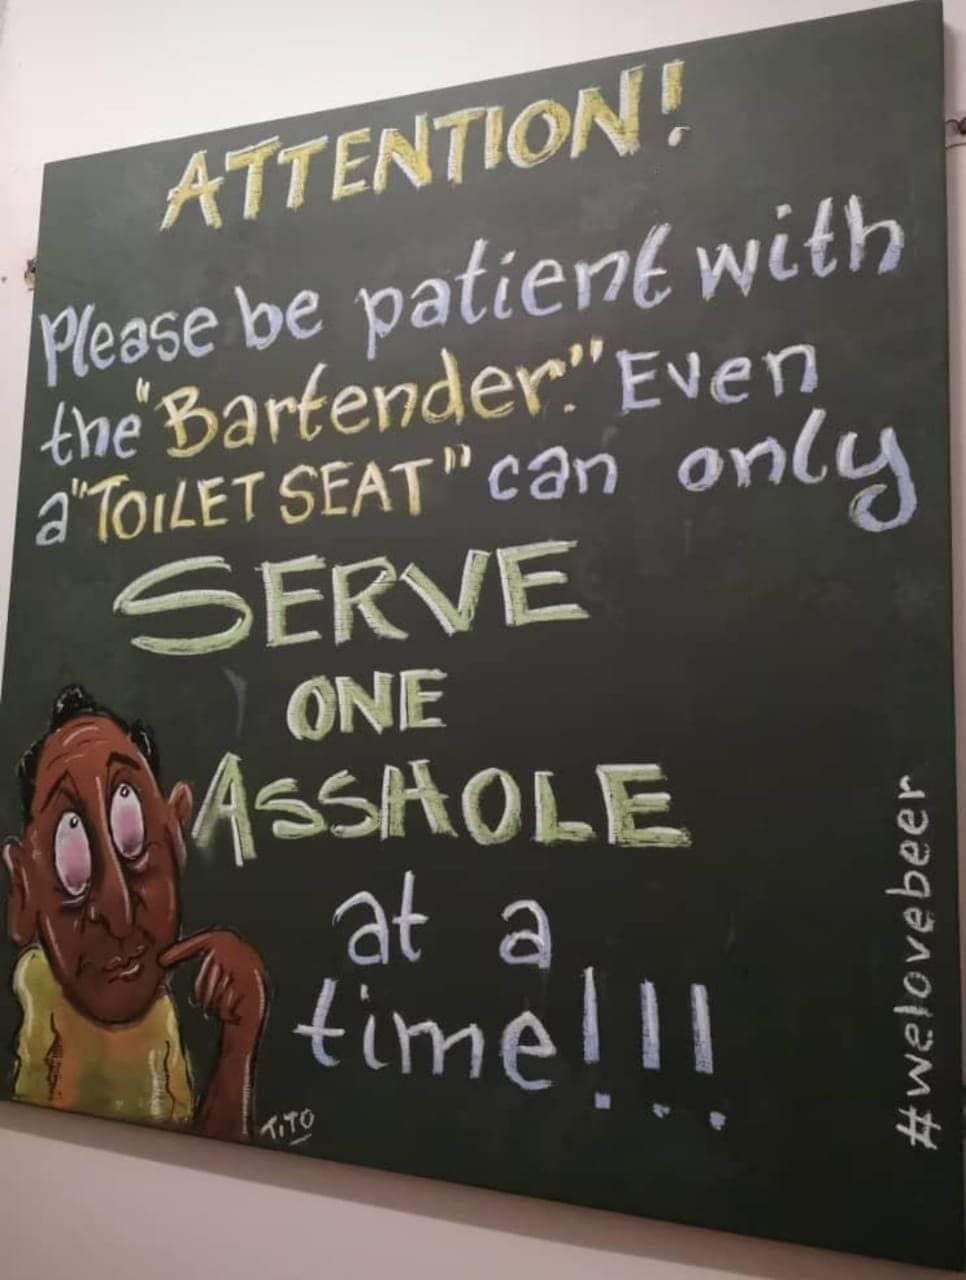 ATTENTION!
Please be patient with
the "Bartender." Even
a "TOILET SEAT" can only
SERVE
ONE
ASSHOLE
at a
time!!!
T.TO
#welovebeer